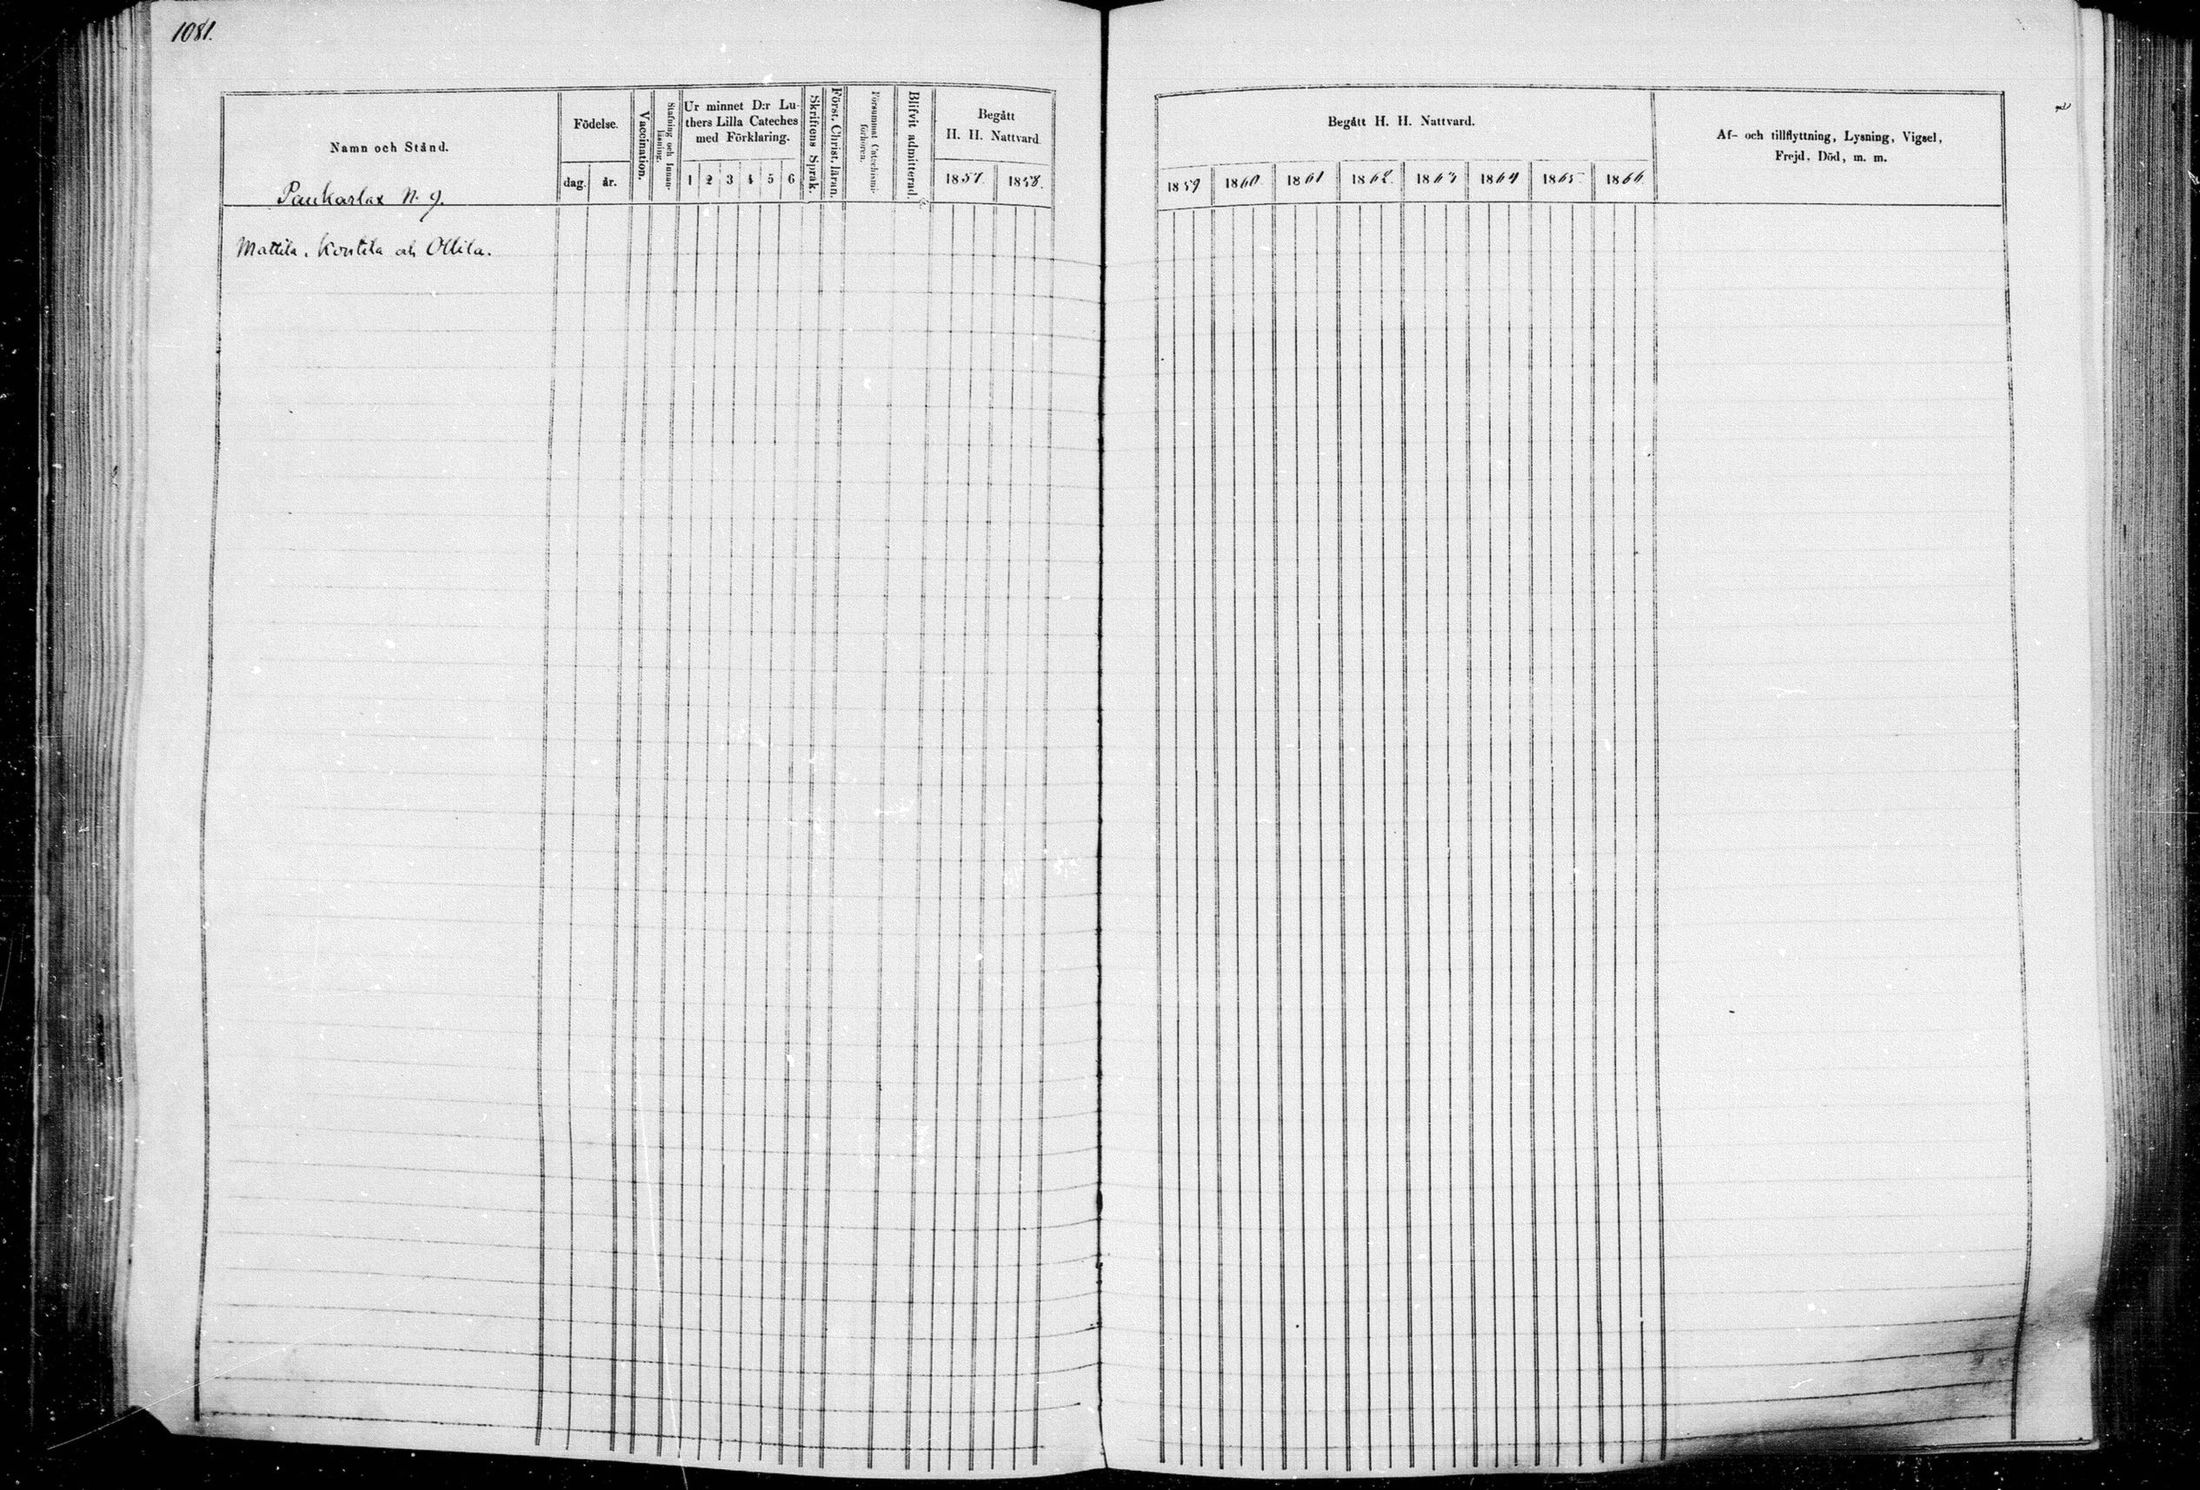 1081.
Namn och Stånd.
Födelse.
dag.
år.
Vaccination.
Stafning och Innan-
läsning.
Ur minnet D:r Lu-
thers Lilla Cateches
med Förklaring.
1 2 3 4 5 6
Skriftens Språk.
Först. Christ. läran.
Försummat Catechismi-
förhören.
Blifvit admitterad.
Begått
H. H. Nattvard
1857. 1858.
Paukarlax N. 9.
Mattila, Kontila och Ollila.
Begått H. H. Nattvard.
1859 1860 1861 1862 1863 1864 1865 1866
Af- och tillflyttning, Lysning, Vigsel,
Frejd, Död, m. m.